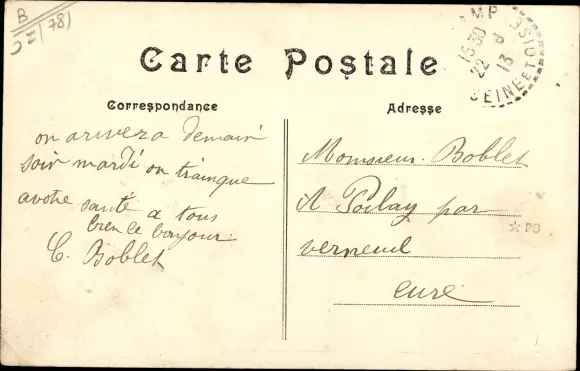 B
(78)
Carte Postale
Correspondance
Adresse
15 30
22 8
13
SEINE ET OISE
on arivera demain
soir mardi on trainque
avotre santé a tous
bien le bonjour
C. Boblet
Monsieur Boblet
A Poslay par
verneuil
eure
PB